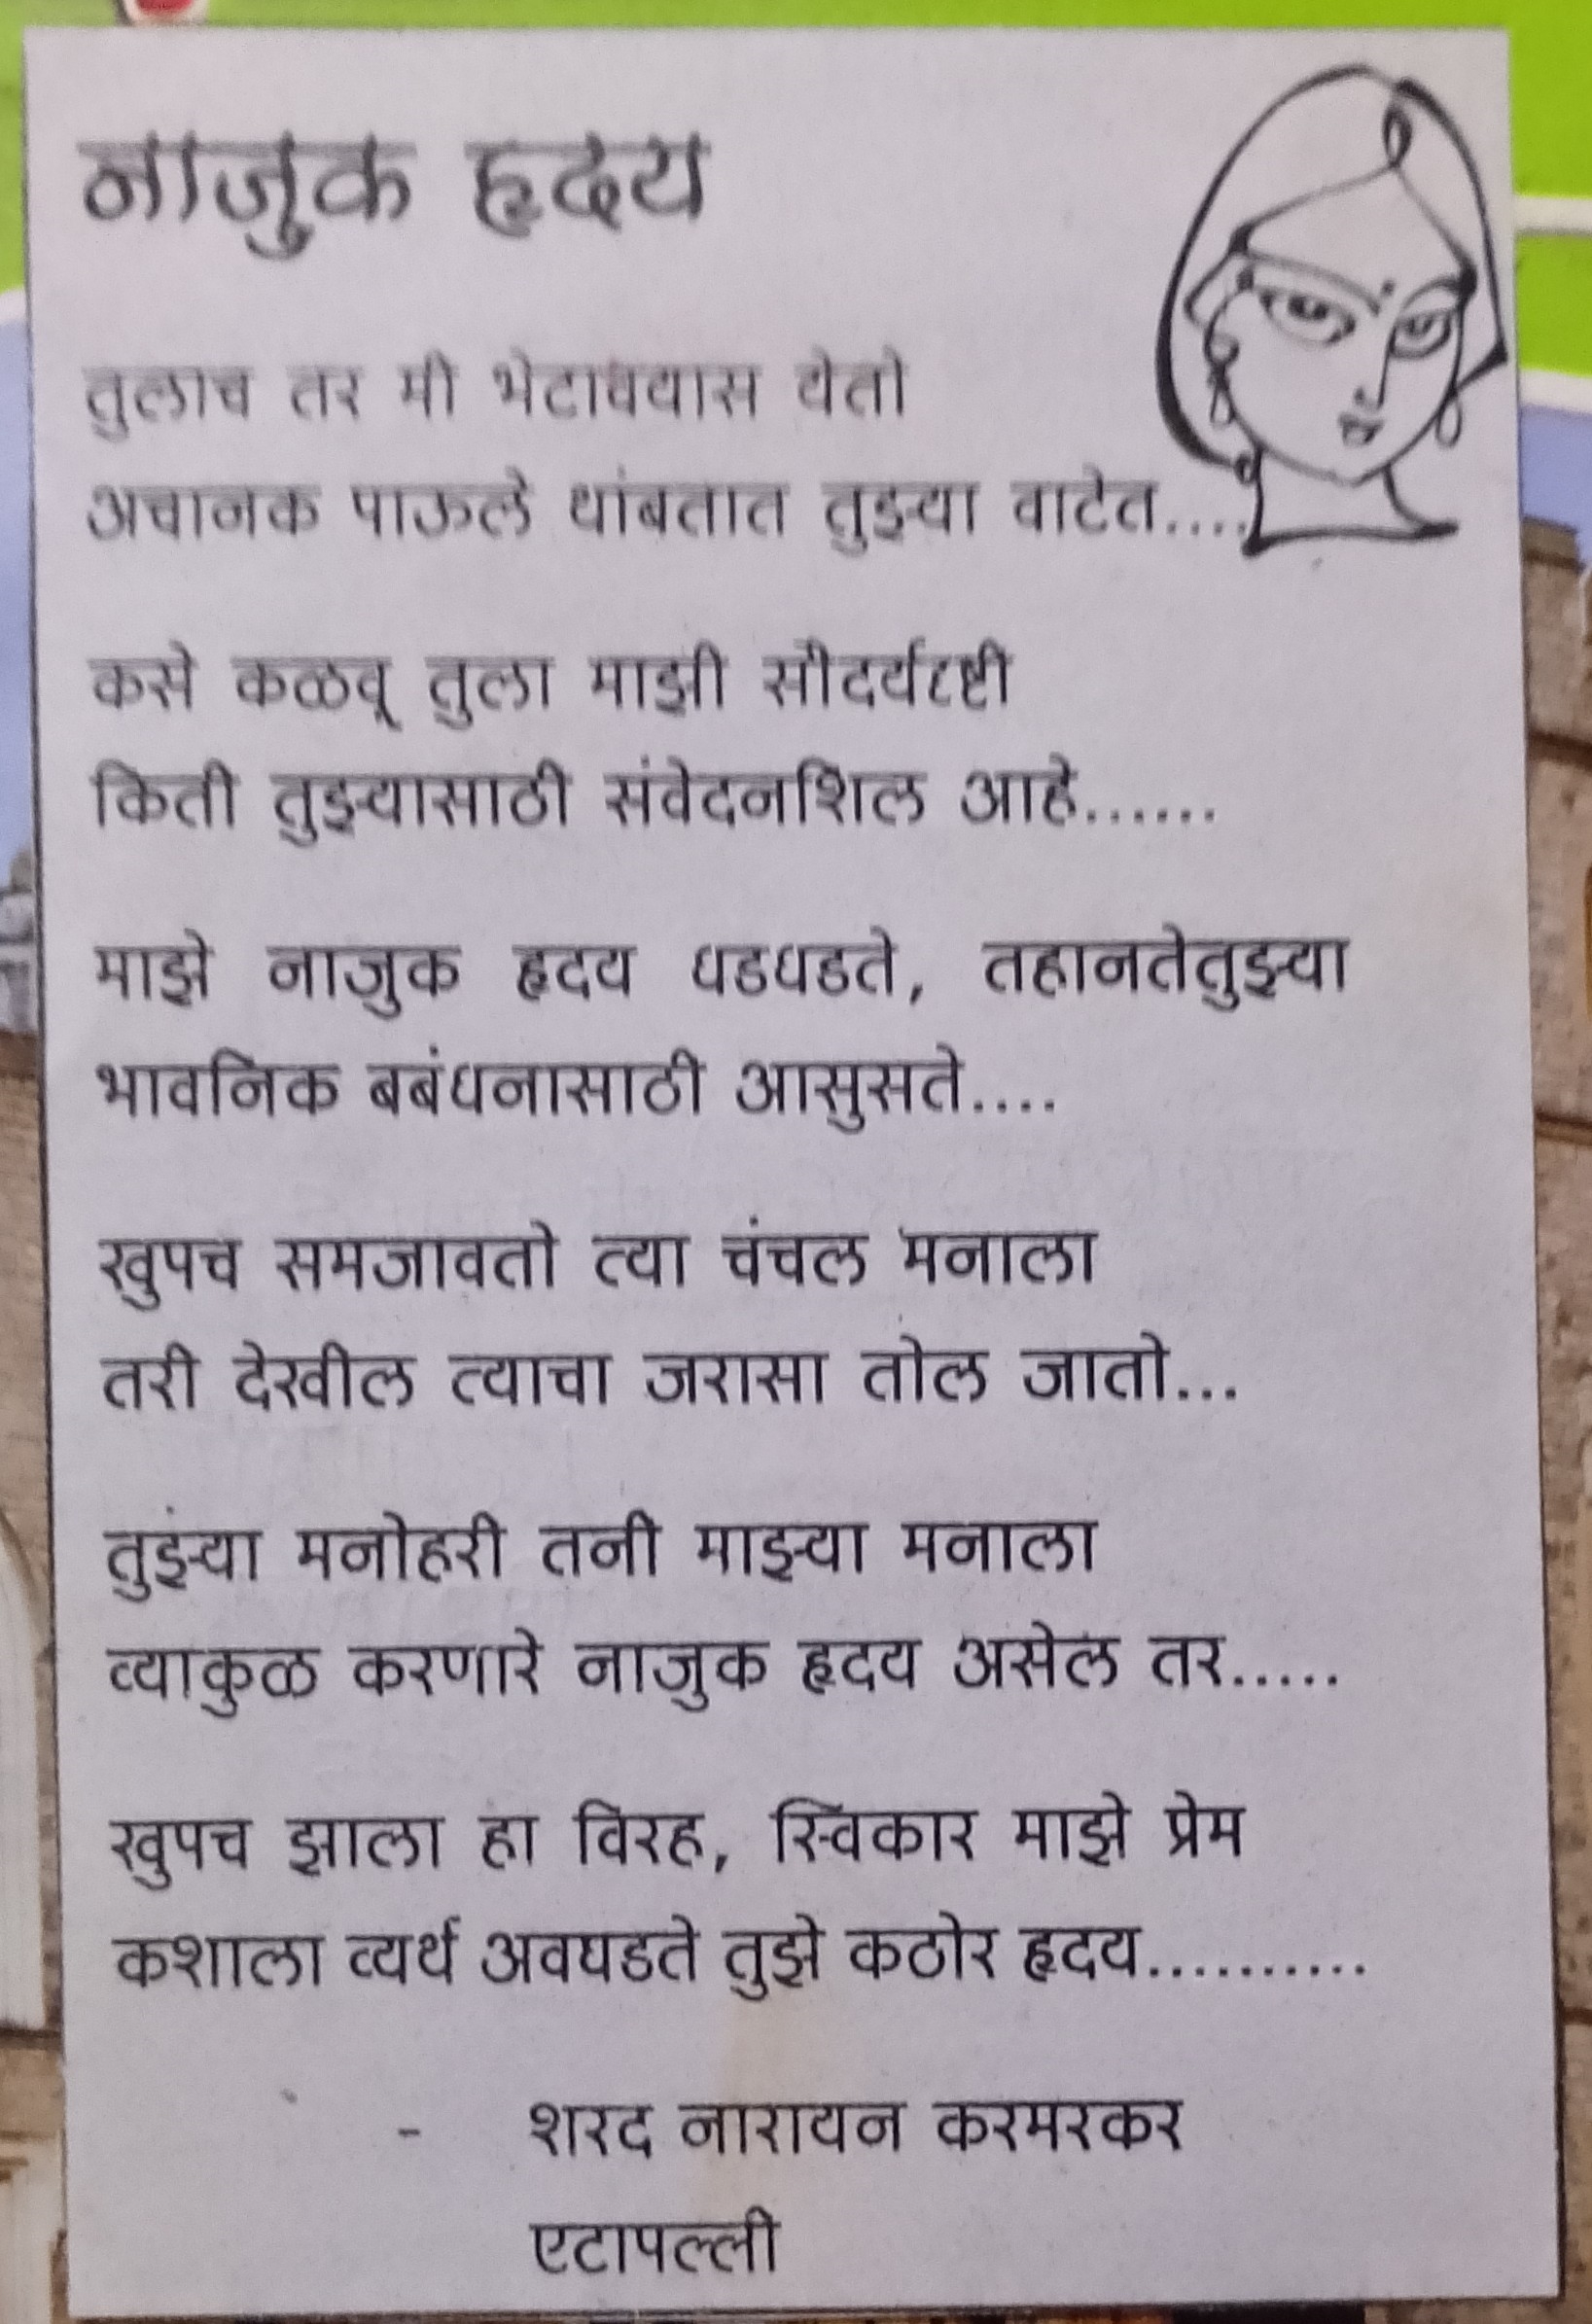 नाजुक हृदय
तुलाच तर मी भेटावयास येतो
अचानक पाऊले थांबतात तुझ्या वाटेत....
कसे कळवू तुला माझी सौदर्यदृष्टी
किती तुझ्यासाठी संवेदनशिल आहे......
माझे नाजुक हृदय धडधडते, तहानतेतुझ्या
भावनिक बबंधनासाठी आसुसते....
खुपच समजावतो त्या चंचल मनाला
तरी देखील त्याचा जरासा तोल जातो...
तुझ्या मनोहरी तनी माझ्या मनाला
व्याकुळ करणारे नाजुक हृदय असेल तर.....
खुपच झाला हा विरह, स्विकार माझे प्रेम
कशाला व्यर्थ अवघडते तुझे कठोर हृदय..........
- शरद नारायन करमरकर
एटापल्ली